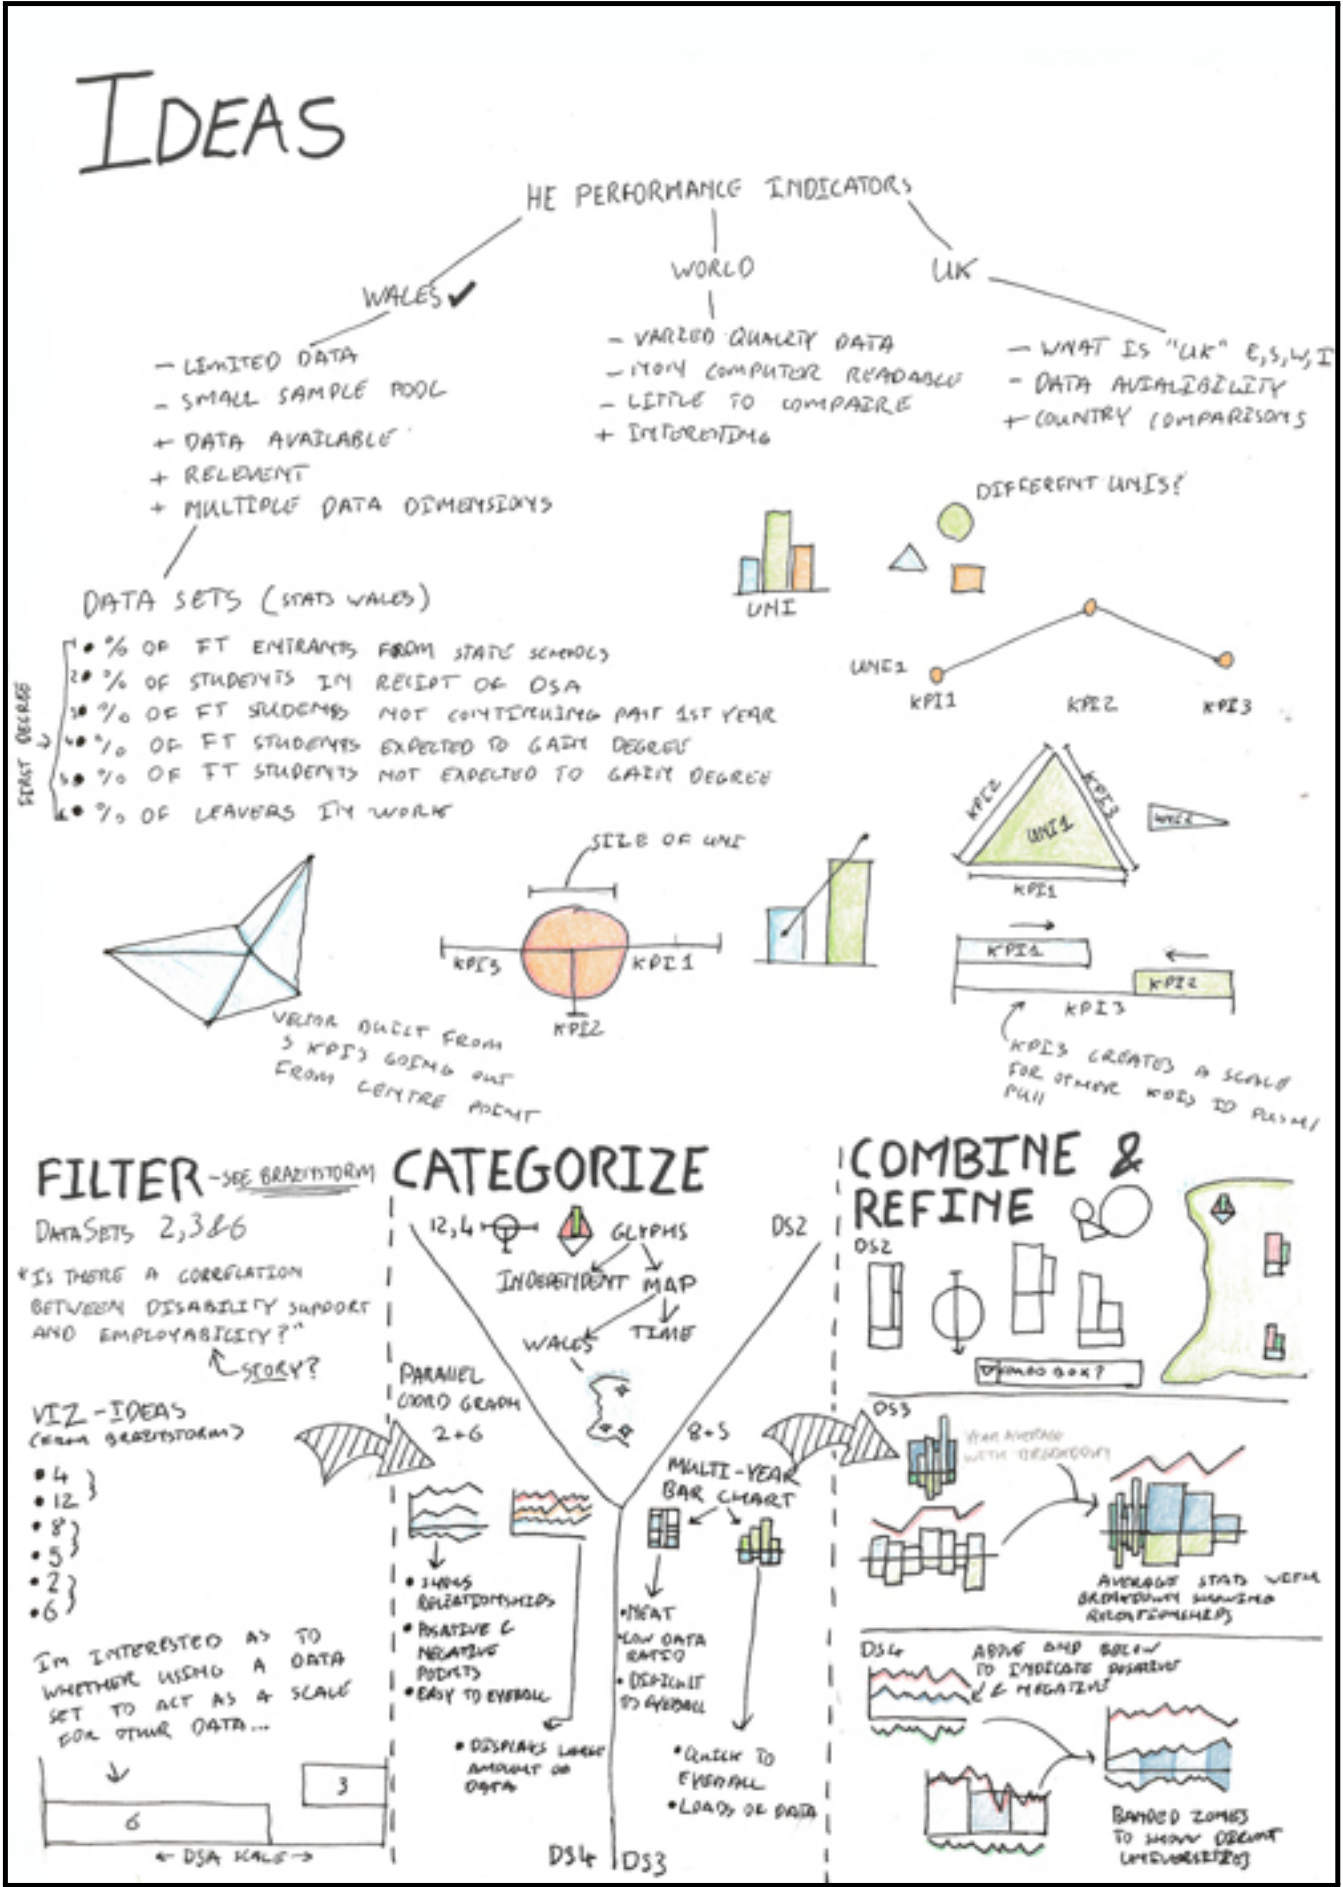 IDEAS
HE PERFORMANCE INDICATORS
WALES ✔
- LIMITED DATA
- SMALL SAMPLE POOL
+ DATA AVAILABLE
+ RELEVENT
+ MULTIPLE DATA DIMENSIONS
WORLD
- VARIED QUALITY DATA
- NON COMPUTER READABLE
- LITTLE TO COMPAIRE
+ INTERESTING
UK
- WHAT IS "UK" E,S,W,I
- DATA AVIALIBILITY
+ COUNTRY COMPARISONS
DATA SETS (STATS WALES)
FIRST DEGREE
1 • % OF FT ENTRANTS FROM STATE SCHOOLS
2 • % OF STUDENTS IN RECIPT OF DSA
3 • % OF FT STUDENTS NOT CONTINUING PAST 1ST YEAR
4 • % OF FT STUDENTS EXPECTED TO GAIN DEGREE
5 • % OF FT STUDENTS NOT EXPECTED TO GAIN DEGREE
6 • % OF LEAVERS IN WORK
UNI
DIFFERENT UNIS?
UNI1
KPI1
KPI2
KPI3
KPI2
KPI3
UNI1
KPI1
VECTOR BUILT FROM
5 KPIS GOING OUT
FROM CENTRE POINT
SIZE OF UNI
KPI3
KPI1
KPI2
KPI1
KPI2
KPI3
KPI3 CREATES A SCALE
FOR OTHER KPIS TO PUSH/
PULL
FILTER - SEE BRAINSTORM
DATASETS 2,3&6
"IS THERE A CORRELATION
BETWEEN DISABILITY SUPPORT
AND EMPLOYABILITY?"
STORY?
VIZ-IDEAS
(FROM BRAINSTORM)
• 4
• 12
• 8
• 5
• 2
• 6
I'M INTERESTED AS TO
WHETHER USING A DATA
SET TO ACT AS A SCALE
FOR OTHER DATA...
3
6
← DSA SCALE →
CATEGORIZE
12,4
GLYPHS
DS2
INDEPENDENT MAP
WALES
TIME
PARALLEL
COORD GRAPH
2+6
• SHOWS
RELEATIONSHIPS
• POSATIVE &
NEGATIVE
POINTS
• EASY TO EYEBALL
• DISPLAYS LARGE
AMOUNT OF
DATA
DS4
8+5
MULTI-YEAR
BAR CHART
• NEAT
• LOW DATA
RATIO
• DIFICULT
TO EYEBALL
• QUICK TO
EYEBALL
• LOADS OF DATA
DS3
COMBINE &
REFINE
DS2
COMBO BOX?
DS3
YEAR AVERAGE
WITH BREAKDOWN
AVERAGE STATS WITH
BREAKDOWN SHOWING
RELATIONSHIPS
DS4
ABOVE AND BELOW
TO INDICATE POSATIVE
& NEGATIVE
BANDED ZONES
TO SHOW